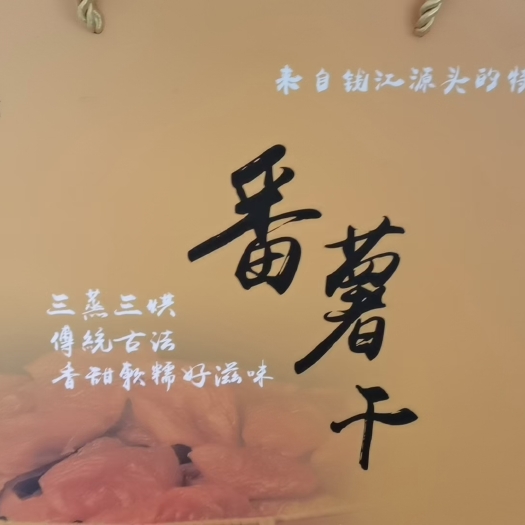 来自钱江源头的特
番薯干
三蒸三烘
傳統古法
香甜軟糯好滋味